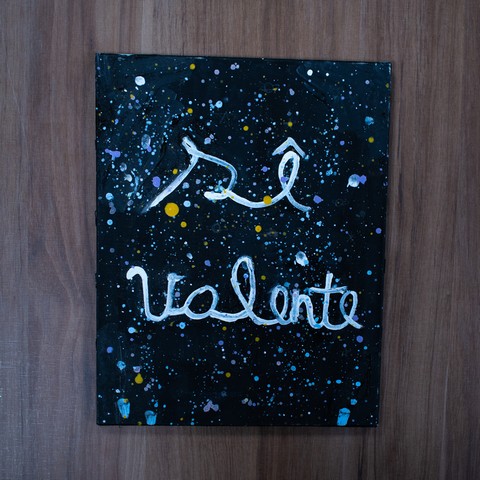 sê
valente